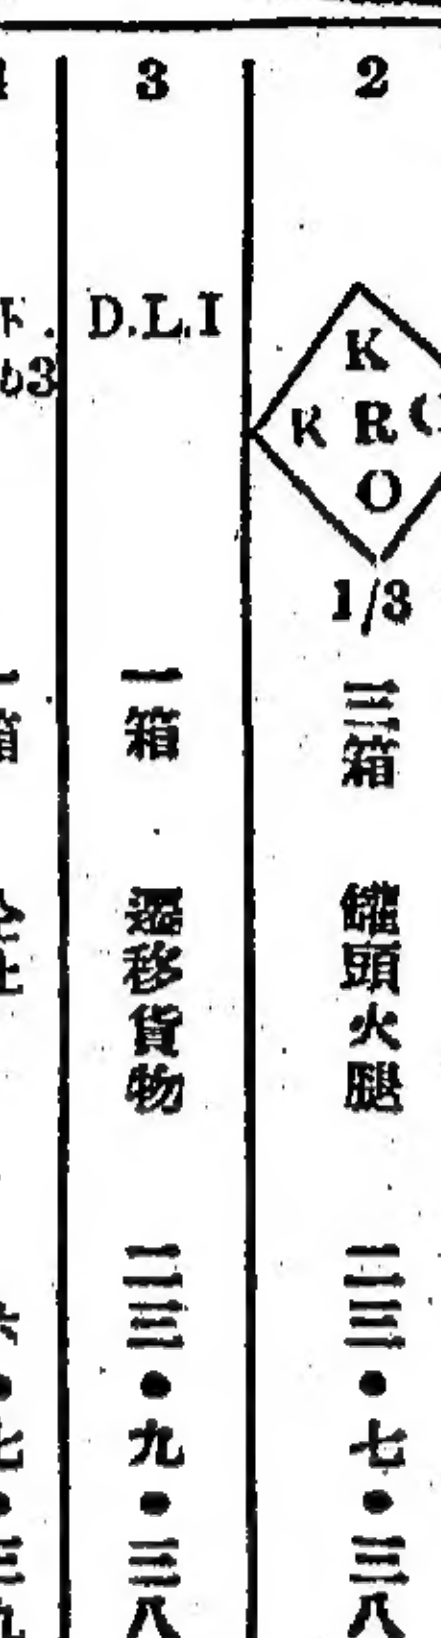 2
K
K R
O
1/3
三箱
罐頭火腿
二三•七•三八
3
D.L.I
一箱
遷移貨物
二三•九•三八